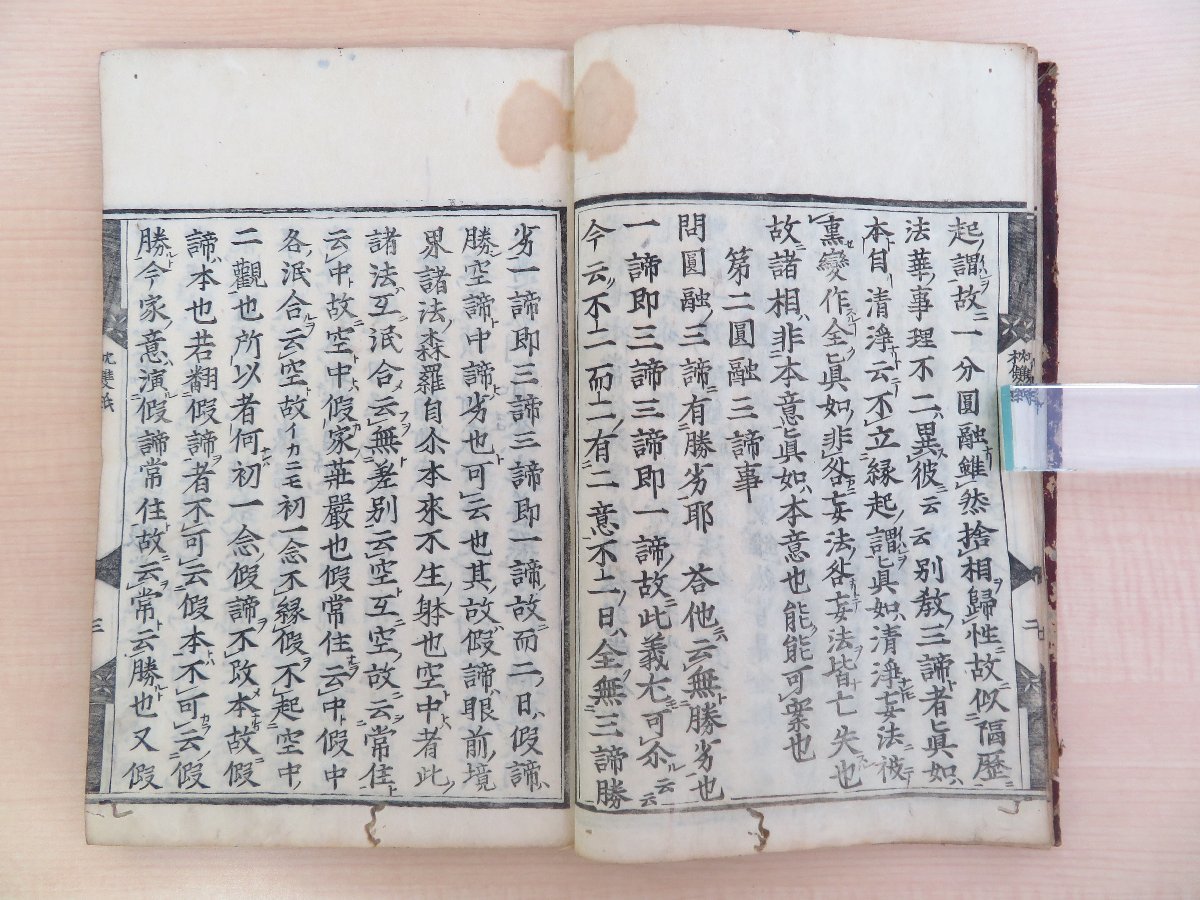 起謂故一分圓融雖然捨相歸性故似隔歷
法華事理不二異彼云云別教三諦者眞如
本自清淨云不立縁起謂眞如清淨妄法被
熏變作全眞如非妄法妄法皆亡失也
故諸相非本意眞如本意也能能可案也
第二圓融三諦事
問圓融三諦有勝劣耶 荅他云無勝劣也
一諦即三諦三諦即一諦故此義尤可尒云云
今云不二而二有二意不二日全無三諦勝
劣一諦即三諦三諦即一諦故而二日假諦
勝空諦中諦劣也可云也其故假諦眼前境
界諸法森羅自尒本來不生躰也空中者此
諸法互泯合云無差別云空互空故云常住
云中故空中假家莊嚴也假常住云中假中
各泯合云空故イカニモ初一念不縁假不起空中
二觀也所以者何初一念假諦不改本故假
諦本也若翻假諦者不可云假本不可云假
勝今家意演假諦常住故云常云勝也又假
三